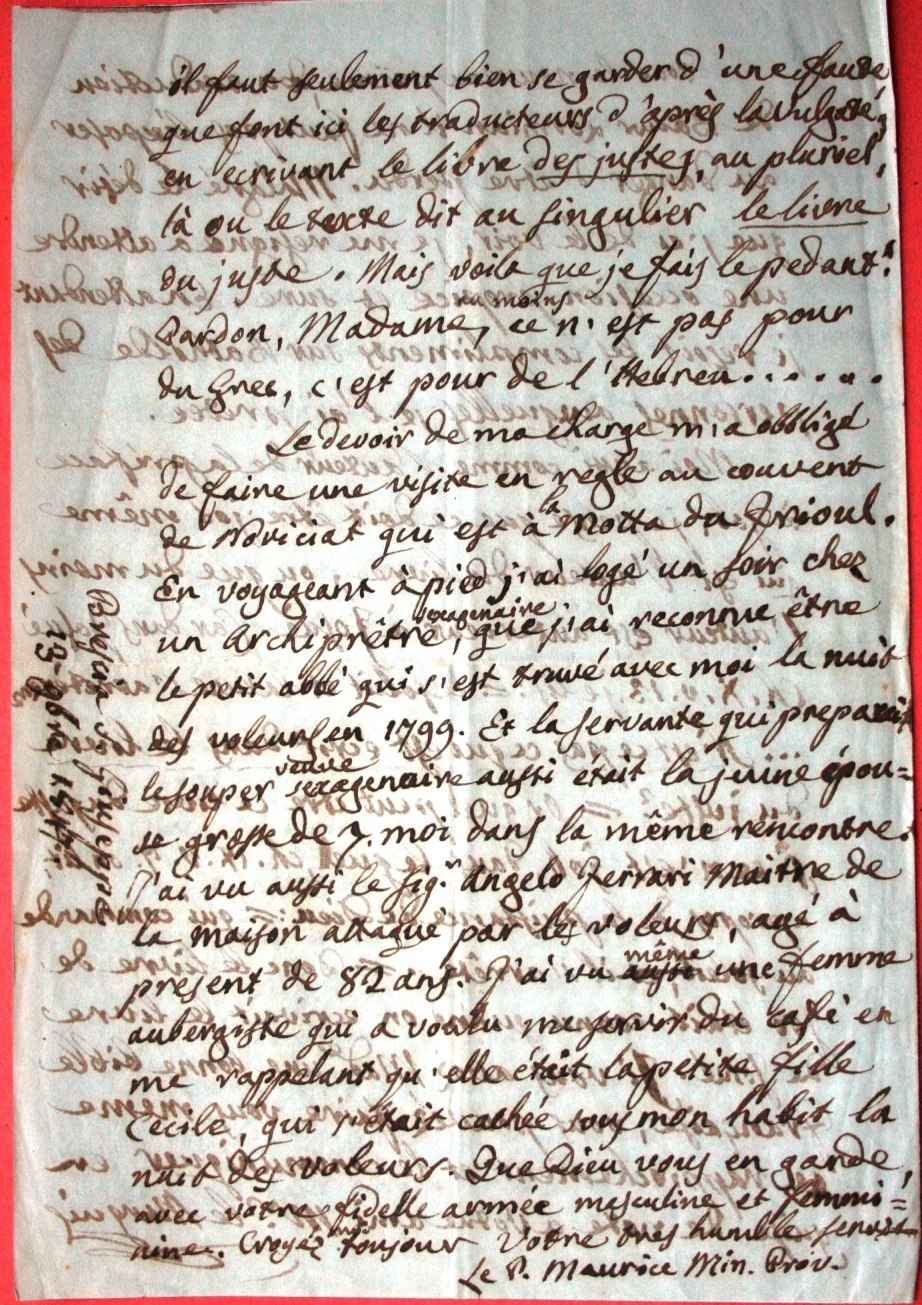 il faut seulement bien se garder d'une faute
que font ici les traducteurs d'après la vulgate,
en ecrivant le livre des justes, au pluriel,
là ou le texte dit au singulier le livre
du juste. Mais voila que je fais le pedant!
Pardon, Madame, au moins ce n'est pas pour
du Grec, c'est pour de l'Hebreu......
Le devoir de ma charge m'a obbligé
de faire une visite en regle au couvent
de Noviciat qui est à la Motta du Frioul.
En voyageant à pied j'ai logé un soir chez
un Archiprêtre sexagenaire, que j'ai reconnu être
le petit abbé qui s'est truvé avec moi la nuit
des voleurs en 1799. Et la servante qui preparait
le souper veuve sexagenaire aussi était la jeune épou=
se grosse de 7. moi dans la même rencontre.
J'ai vu aussi le sig.r Angelo Ferrari Maitre de
la maison attaqué par les voleurs, agé à
present de 82 ans. J'ai vu même aussi une femme
aubergiste qui a voulu me servir du café en
me rappelant qu'elle était la petite fille
Cecile, qui s'était cachée sous mon habit la
nuit des voleurs. Que Dieu vous en garde,
avec vôtre fidelle armée masculine et femini=
nine. Croyéz moi toujour Votre tres humble serv
Le P. Maurice Min. Prov.
13 9bre